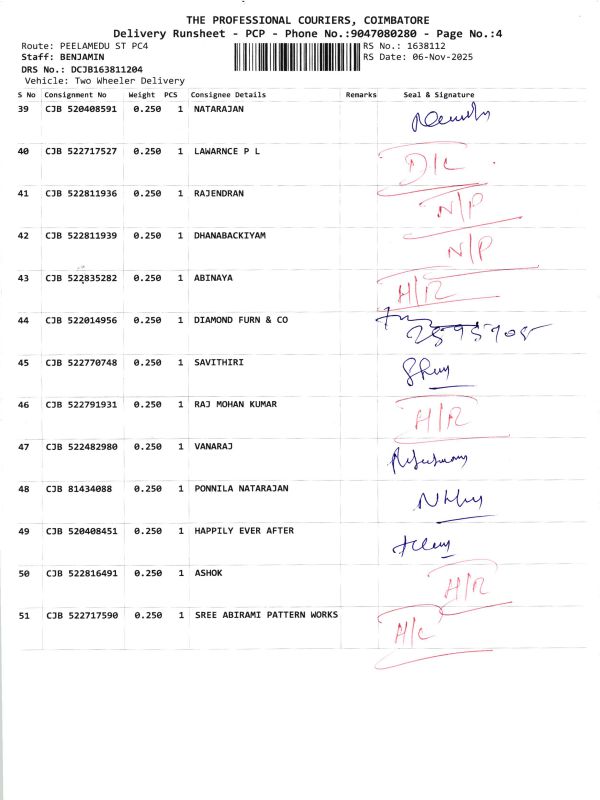 THE PROFESSIONAL COURIERS, COIMBATORE
Delivery Runsheet - PCP - Phone No.:9047080280 - Page No.:4
Route: PEELAMEDU ST PC4 RS No.: 1638112
Staff: BENJAMIN RS Date: 06-Nov-2025
DRS No.: DCJB163811204
Vehicle: Two Wheeler Delivery
S No Consignment No Weight PCS Consignee Details Remarks Seal & Signature
39 CJB 520408591 0.250 1 NATARAJAN
40 CJB 522717527 0.250 1 LAWARNCE P L D/C
41 CJB 522811936 0.250 1 RAJENDRAN N/P
42 CJB 522811939 0.250 1 DHANABACKIYAM N/P
43 CJB 522835282 0.250 1 ABINAYA H/R
44 CJB 522014956 0.250 1 DIAMOND FURN & CO
45 CJB 522770748 0.250 1 SAVITHIRI
46 CJB 522791931 0.250 1 RAJ MOHAN KUMAR H/R
47 CJB 522482980 0.250 1 VANARAJ
48 CJB 81434088 0.250 1 PONNILA NATARAJAN
49 CJB 520408451 0.250 1 HAPPILY EVER AFTER
50 CJB 522816491 0.250 1 ASHOK H/R
51 CJB 522717590 0.250 1 SREE ABIRAMI PATTERN WORKS H/C